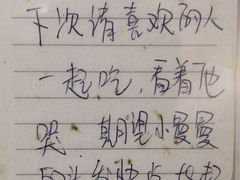 下次请喜欢的人
一起吃,看着他
哭。期望小曼曼